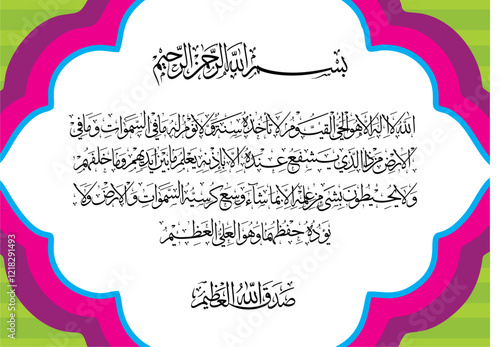 بسم الله الرحمن الرحيم
الله لا اله الا هو الحي القيوم لا تأخذه سنة ولا نوم له ما في السموات وما في
الارض من ذا الذي يشفع عنده الا باذنه يعلم ما بين ايديهم وما خلفهم
ولا يحيطون بشئ من علمه الا بما شاء وسع كرسيه السموات والارض ولا
يؤده حفظهما وهو العلي العظيم
صدق الله العظيم
Adobe Stock | #1218291493